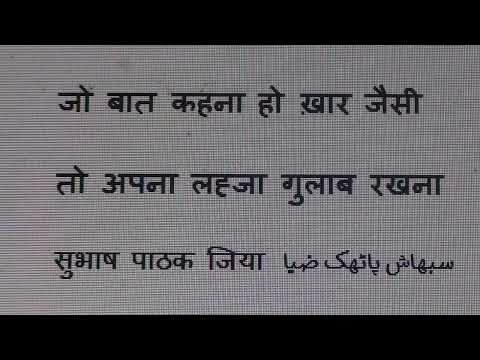 जो बात कहना हो ख़ार जैसी
तो अपना लह्जा गुलाब रखना
सुभाष पाठक जिया سبھاش پاٹھک ضیا